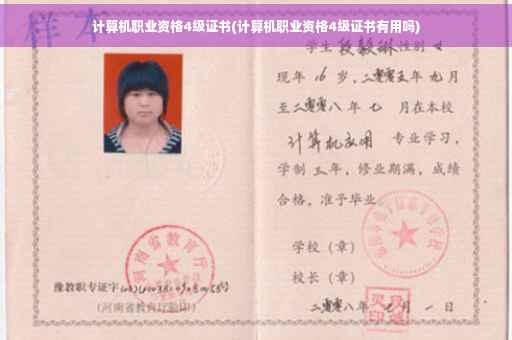 样本
计算机职业资格4级证书(计算机职业资格4级证书有用吗)
学生 段 性别 女
现年 16 岁，二零零五年 九月
至二零零八年 七 月在本校
计算机应用 专业学习，
学制 三年，修业期满，成绩
合格，准予毕业
学校（章）
校长（章）
二零零八年 七 月 一 日
河南省教育厅
豫教职专证字
(河南省教育厅验印)